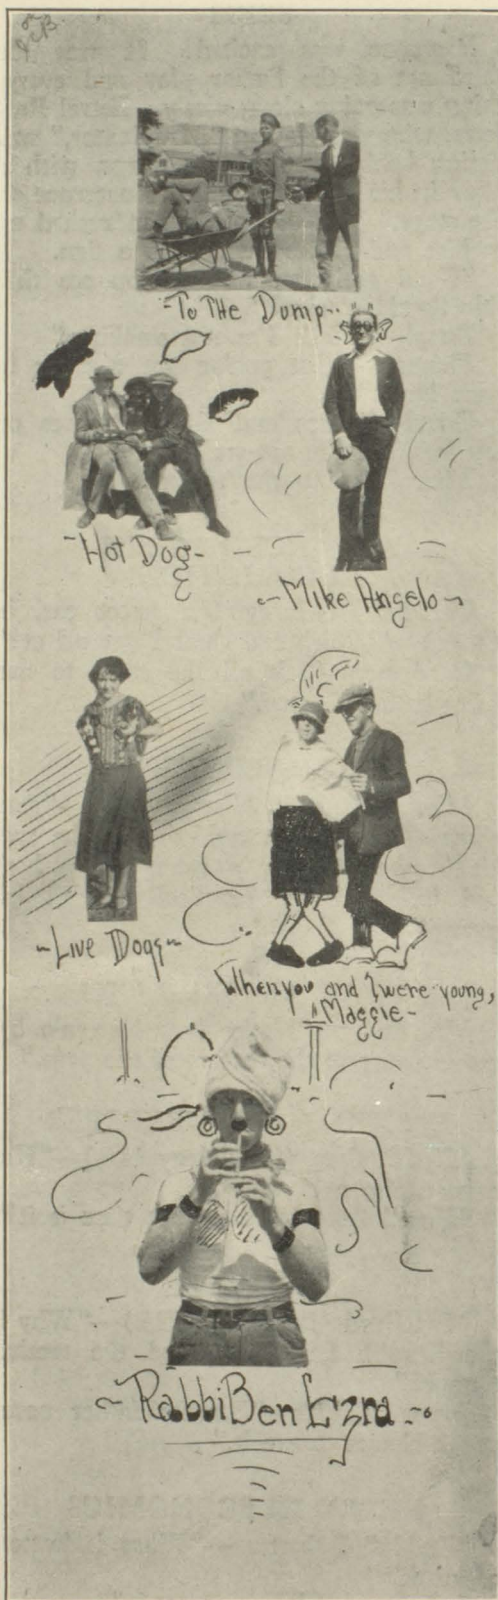 -To THE Dump-
-Hot Dog-
-Mike Angelo-
-Live Dogs-
When you and I were young,
Maggie-
-Rabbi Ben Ezra-